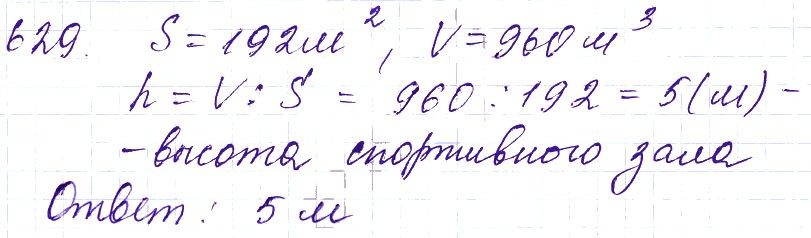 629. S = 192 м², V = 960 м³
h = V : S = 960 : 192 = 5 (м) -
- высота спортивного зала
Ответ: 5 м